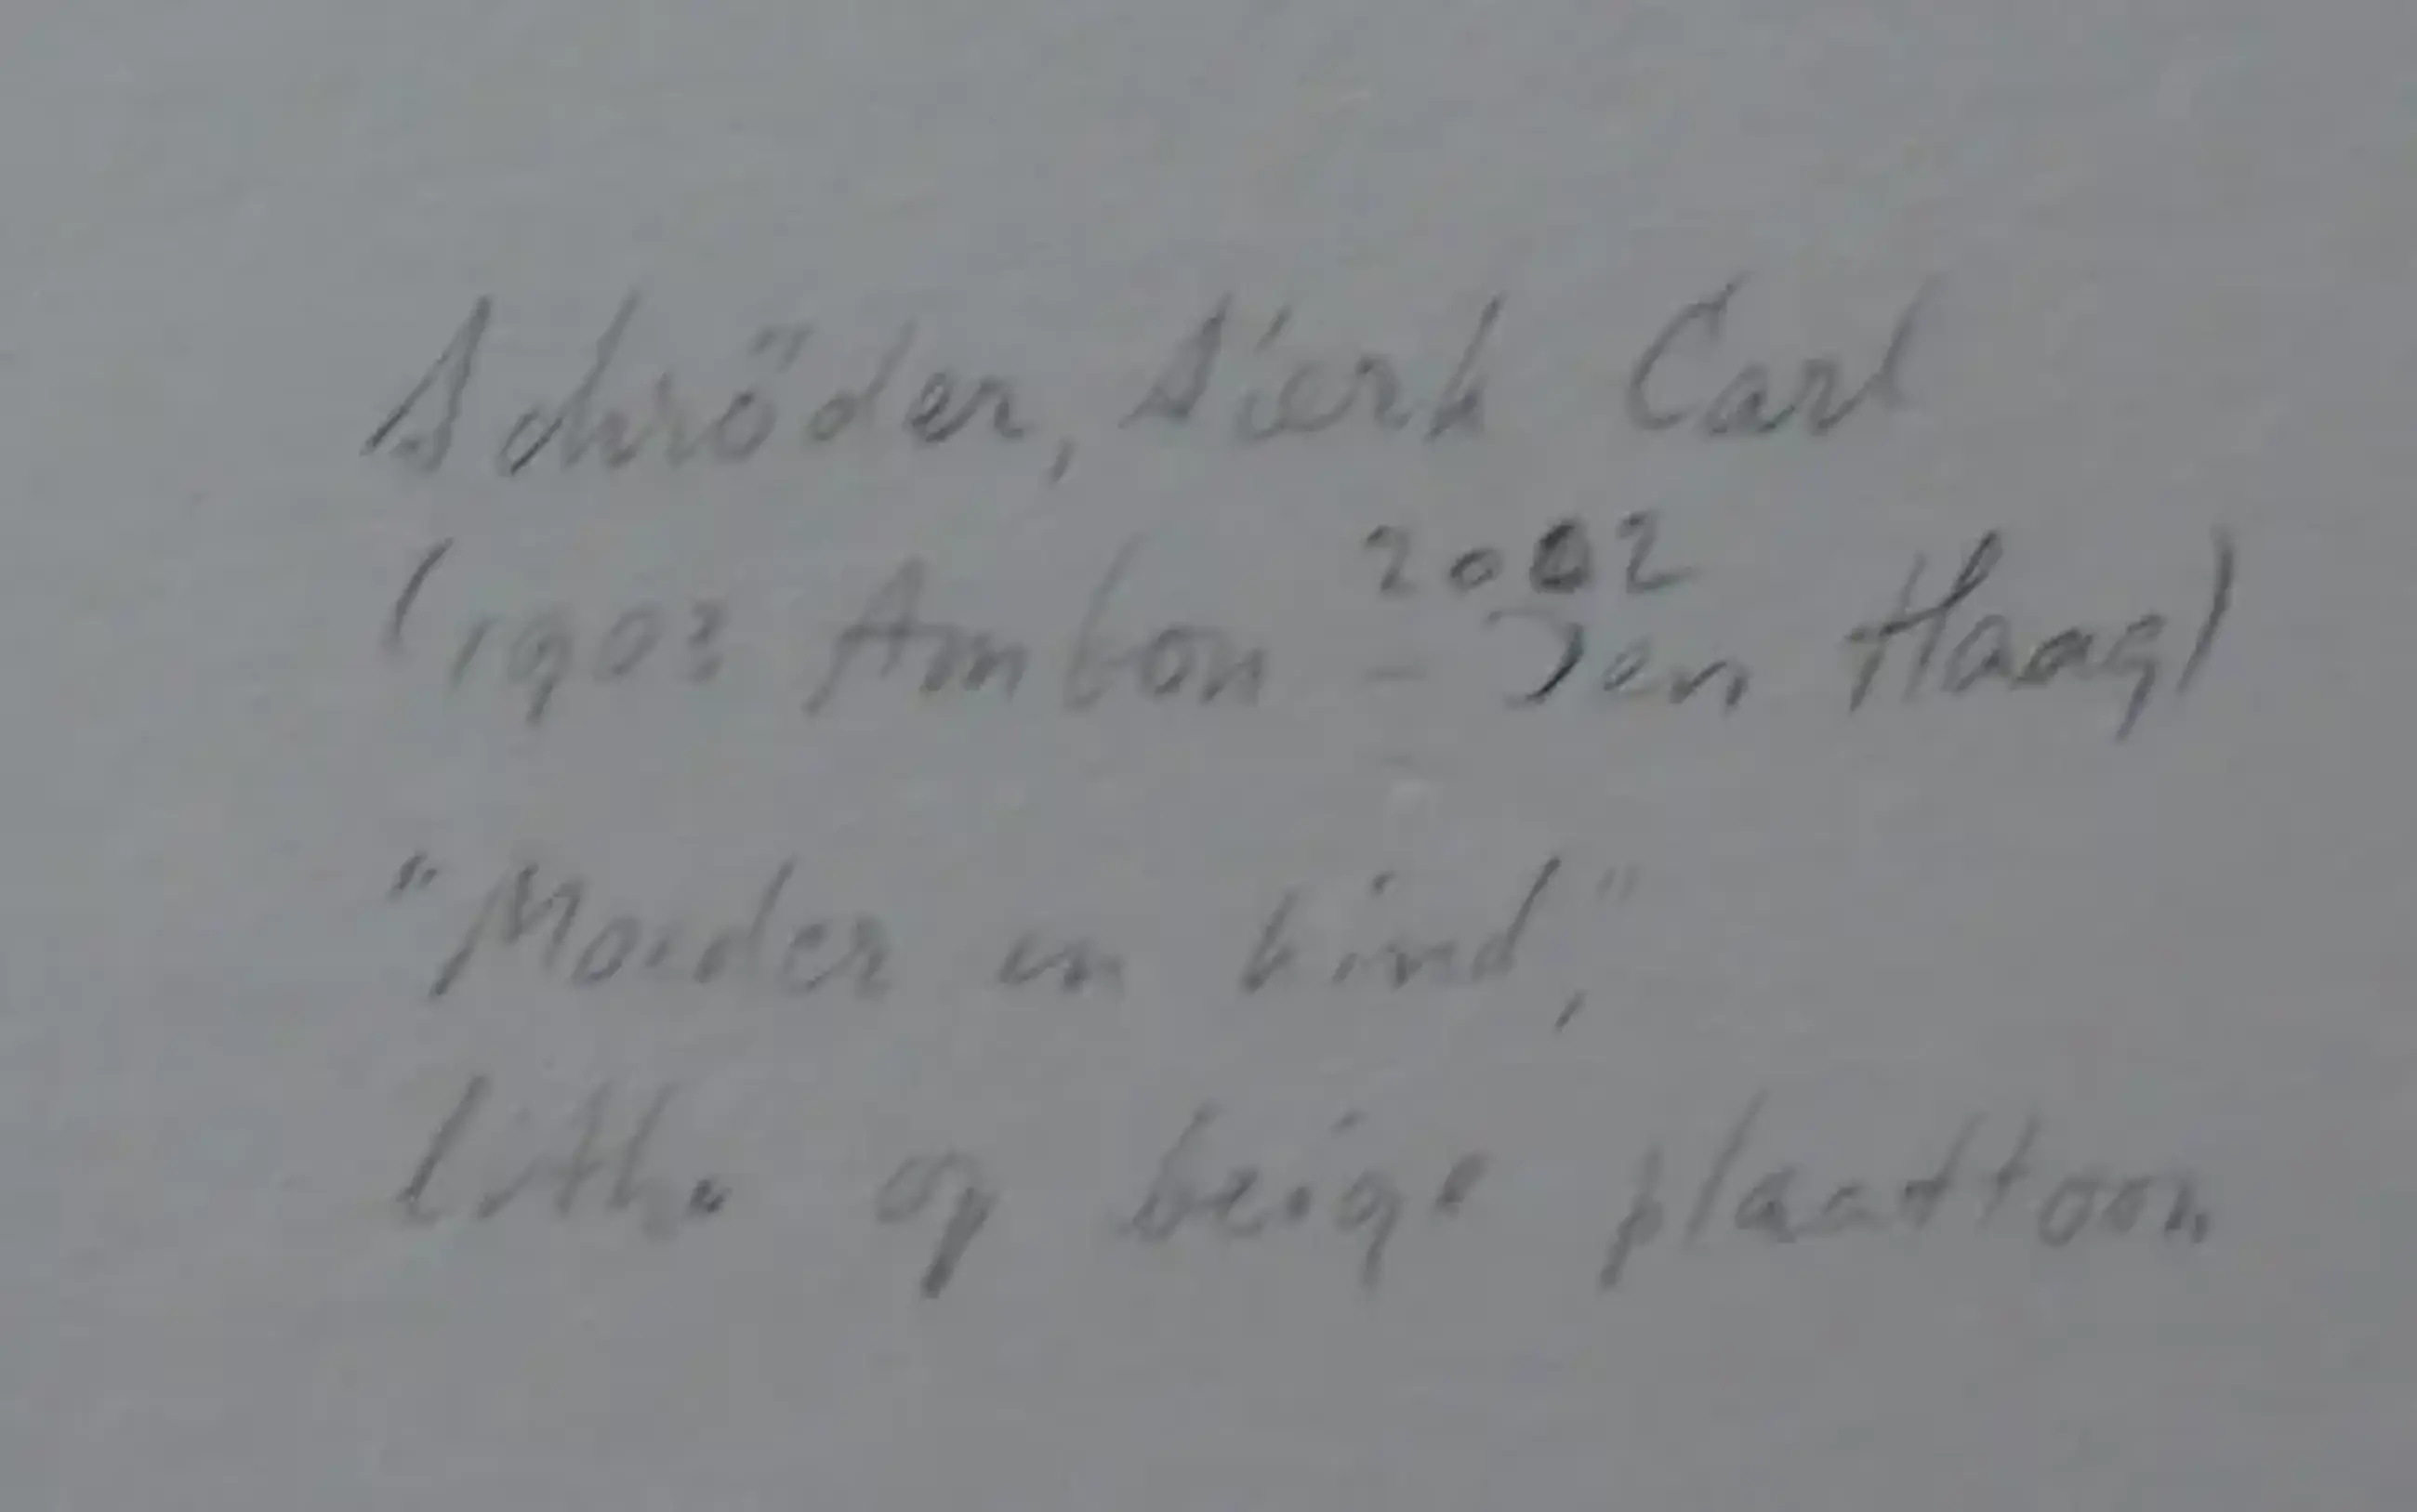 Schröder, Sierk Carl
2002
(1903 Ambon - Den Haag)
"Moeder en kind,"
litho op beige plaattoon